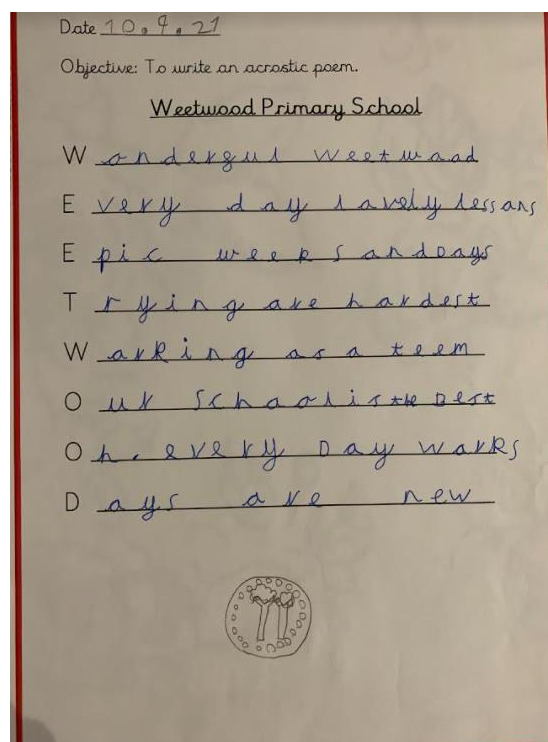 Date 10.9.21
Objective: To write an acrostic poem.
Weetwood Primary School
Wonderful Weetwood
Every day lovely lessons
Epic weeks and Days
Trying are hardest
Working as a teem
Our School is the Best
Oh. every Day works
Days are new